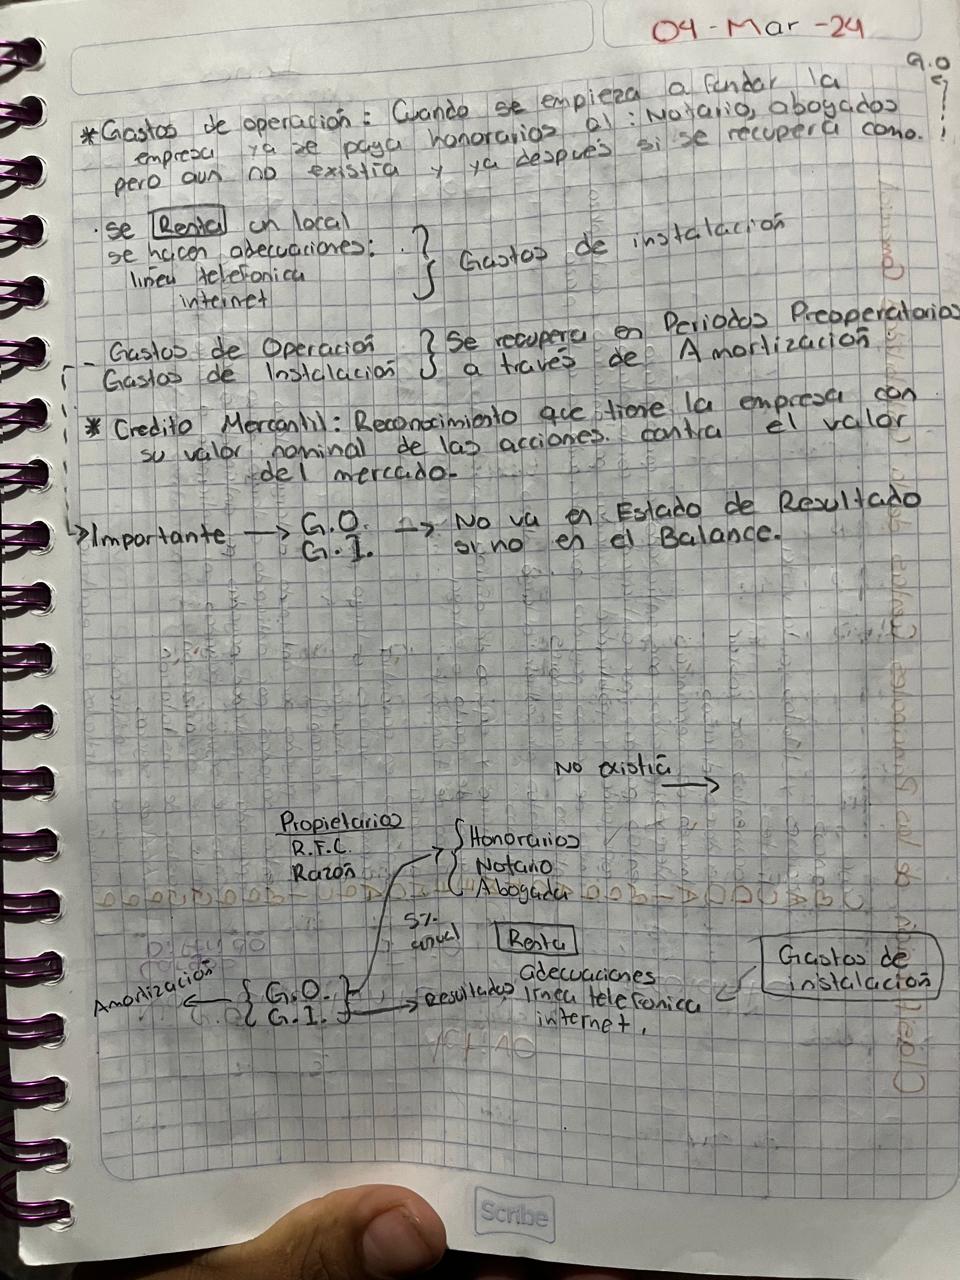 04-Mar-24
*Gastos de operación: Cuando se empieza a fundar la
empresa ya se paga honorarios al: Notario, abogados
pero aun no existia y ya después si se recupera como.
G.O
· se Renta un local
se hacen adecuaciones:
linea telefonica
internet
Gastos de instalación
- Gastos de Operación
Gastos de Instalación
Se recupera en Periodos Preoperatorios
a través de Amortización
* Credito Mercantil: Reconocimiento que tiene la empresa con
su valor nominal de las acciones. contra el valor
del mercado.
Importante → G.O. → No va en Estado de Resultado
G.I. si no en el Balance.
No existia →
Propietarios
R.F.C.
Razón
Honorarios
Notario
Abogada
5%
anual
Renta
adecuaciones
linea telefonica
internet,
Gastos de
instalación
Amortización ← { G.O. }
{ G.I. } → Resultados
Scribe